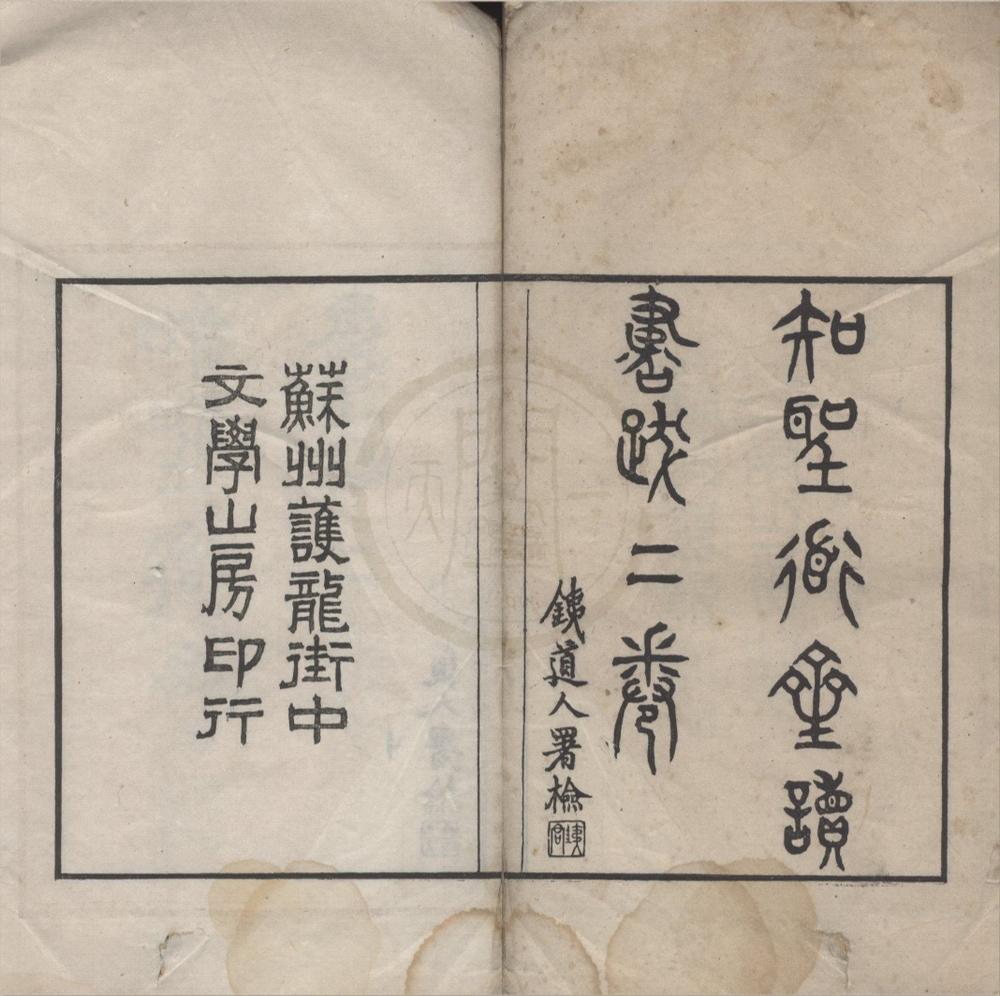 知聖衜齋讀
書跋二卷
銕道人署檢
蘇州護龍街中
文學山房印行